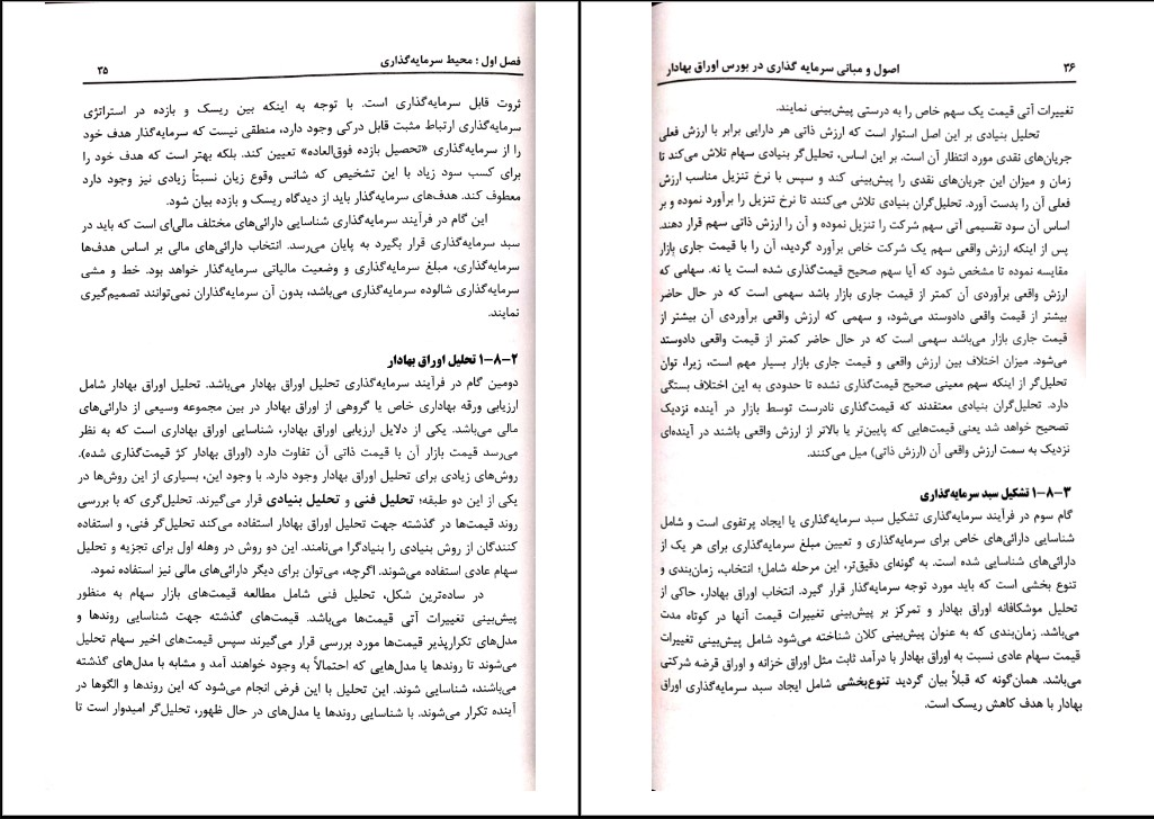 فصل اول ؛ محیط سرمایه‌گذاری ۳۵
ثروت قابل سرمایه‌گذاری است. با توجه به اینکه بین ریسک و بازده در استراتژی
سرمایه‌گذاری ارتباط مثبت قابل درکی وجود دارد، منطقی نیست که سرمایه‌گذار هدف خود
را از سرمایه‌گذاری «تحصیل بازده فوق‌العاده» تعیین کند. بلکه بهتر است که هدف خود را
برای کسب سود زیاد با این تشخیص که شانس وقوع زیان نسبتاً زیادی نیز وجود دارد
معطوف کند. هدف‌های سرمایه‌گذار باید از دیدگاه ریسک و بازده بیان شود.
این گام در فرآیند سرمایه‌گذاری شناسایی دارائی‌های مختلف مالی‌ای است که باید در
سبد سرمایه‌گذاری قرار بگیرد به پایان می‌رسد. انتخاب دارائی‌های مالی بر اساس هدف‌ها
سرمایه‌گذاری، مبلغ سرمایه‌گذاری و وضعیت مالیاتی سرمایه‌گذار خواهد بود. خط و مشی
سرمایه‌گذاری شالوده سرمایه‌گذاری می‌باشد، بدون آن سرمایه‌گذاران نمی‌توانند تصمیم‌گیری
نمایند.
۱–۸–۲ تحلیل اوراق بهادار
دومین گام در فرآیند سرمایه‌گذاری تحلیل اوراق بهادار می‌باشد. تحلیل اوراق بهادار شامل
ارزیابی ورقه بهاداری خاص یا گروهی از اوراق بهادار در بین مجموعه وسیعی از دارائی‌های
مالی می‌باشد. یکی از دلایل ارزیابی اوراق بهادار، شناسایی اوراق بهاداری است که به نظر
می‌رسد قیمت بازار آن با قیمت ذاتی آن تفاوت دارد (اوراق بهادار کژ قیمت‌گذاری شده).
روش‌های زیادی برای تحلیل اوراق بهادار وجود دارد. با وجود این، بسیاری از این روش‌ها در
یکی از این دو طبقه؛ تحلیل فنی و تحلیل بنیادی قرار می‌گیرند. تحلیل‌گری که با بررسی
روند قیمت‌ها در گذشته جهت تحلیل اوراق بهادار استفاده می‌کند تحلیل‌گر فنی، و استفاده
کنندگان از روش بنیادی را بنیادگرا می‌نامند. این دو روش در وهله اول برای تجزیه و تحلیل
سهام عادی استفاده می‌شوند. اگرچه، می‌توان برای دیگر دارائی‌های مالی نیز استفاده نمود.
در ساده‌ترین شکل، تحلیل فنی شامل مطالعه قیمت‌های بازار سهام به منظور
پیش‌بینی تغییرات آتی قیمت‌ها می‌باشد. قیمت‌های گذشته جهت شناسایی روندها و
مدل‌های تکرارپذیر قیمت‌ها مورد بررسی قرار می‌گیرند سپس قیمت‌های اخیر سهام تحلیل
می‌شوند تا روندها یا مدل‌هایی که احتمالاً به وجود خواهند آمد و مشابه با مدل‌های گذشته
می‌باشند، شناسایی شوند. این تحلیل با این فرض انجام می‌شود که این روندها و الگوها در
آینده تکرار می‌شوند. با شناسایی روندها یا مدل‌های در حال ظهور، تحلیل‌گر امیدوار است تا
۳۶ اصول و مبانی سرمایه گذاری در بورس اوراق بهادار
تغییرات آتی قیمت یک سهم خاص را به درستی پیش‌بینی نمایند.
تحلیل بنیادی بر این اصل استوار است که ارزش ذاتی هر دارایی برابر با ارزش فعلی
جریان‌های نقدی مورد انتظار آن است. بر این اساس، تحلیل‌گر بنیادی سهام تلاش می‌کند تا
زمان و میزان این جریان‌های نقدی را پیش‌بینی کند و سپس با نرخ تنزیل مناسب ارزش
فعلی آن را بدست آورد. تحلیل‌گران بنیادی تلاش می‌کنند تا نرخ تنزیل را برآورد نموده و بر
اساس آن سود تقسیمی آتی سهم شرکت را تنزیل نموده و آن را ارزش ذاتی سهم قرار دهند.
پس از اینکه ارزش واقعی سهم یک شرکت خاص برآورد گردید، آن را با قیمت جاری بازار
مقایسه نموده تا مشخص شود که آیا سهم صحیح قیمت‌گذاری شده است یا نه. سهامی که
ارزش واقعی برآوردی آن کمتر از قیمت جاری بازار باشد سهمی است که در حال حاضر
بیشتر از قیمت واقعی دادوستد می‌شود، و سهمی که ارزش واقعی برآوردی آن بیشتر از
قیمت جاری بازار می‌باشد سهمی است که در حال حاضر کمتر از قیمت واقعی دادوستد
می‌شود. میزان اختلاف بین ارزش واقعی و قیمت جاری بازار بسیار مهم است، زیرا، توان
تحلیل‌گر از اینکه سهم معینی صحیح قیمت‌گذاری نشده تا حدودی به این اختلاف بستگی
دارد. تحلیل‌گران بنیادی معتقدند که قیمت‌گذاری نادرست توسط بازار در آینده نزدیک
تصحیح خواهد شد یعنی قیمت‌هایی که پایین‌تر یا بالاتر از ارزش واقعی باشند در آینده‌ای
نزدیک به سمت ارزش واقعی آن (ارزش ذاتی) میل می‌کنند.
۱–۸–۳ تشکیل سبد سرمایه‌گذاری
گام سوم در فرآیند سرمایه‌گذاری تشکیل سبد سرمایه‌گذاری یا ایجاد پرتفوی است و شامل
شناسایی دارائی‌های خاص برای سرمایه‌گذاری و تعیین مبلغ سرمایه‌گذاری برای هر یک از
دارائی‌های شناسایی شده است. به گونه‌ای دقیق‌تر، این مرحله شامل؛ انتخاب، زمان‌بندی و
تنوع بخشی است که باید مورد توجه سرمایه‌گذار قرار گیرد. انتخاب اوراق بهادار، حاکی از
تحلیل موشکافانه اوراق بهادار و تمرکز بر پیش‌بینی تغییرات قیمت آنها در کوتاه مدت
می‌باشد. زمان‌بندی که به عنوان پیش‌بینی کلان شناخته می‌شود شامل پیش‌بینی تغییرات
قیمت سهام عادی نسبت به اوراق بهادار با درآمد ثابت مثل اوراق خزانه و اوراق قرضه شرکتی
می‌باشد. همان‌گونه که قبلاً بیان گردید تنوع‌بخشی شامل ایجاد سبد سرمایه‌گذاری اوراق
بهادار با هدف کاهش ریسک است.